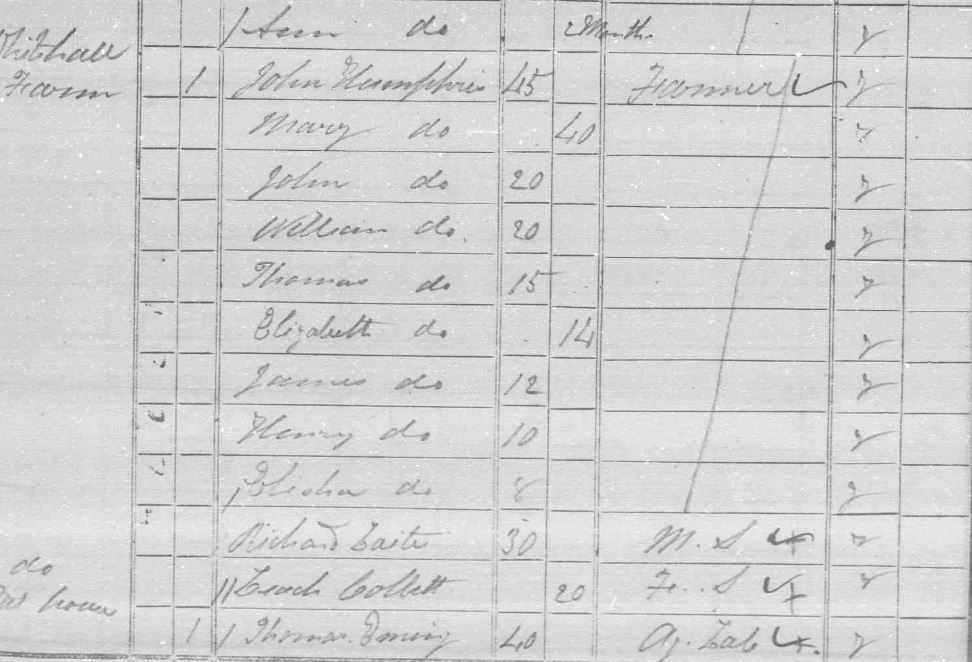 Ann do 2 Month y
Farm 1 John Humphries 45 Farmer y
Mary do 40 y
John do 20 y
William do. 20 y
Thomas do 15 y
Elizabeth do 14 y
James do 12 y
Henry do 10 y
Elisha do 8 y
Richard 30 M. S y
do Collett 20 F. S y
house 1 Thomas 40 Ag. Lab y